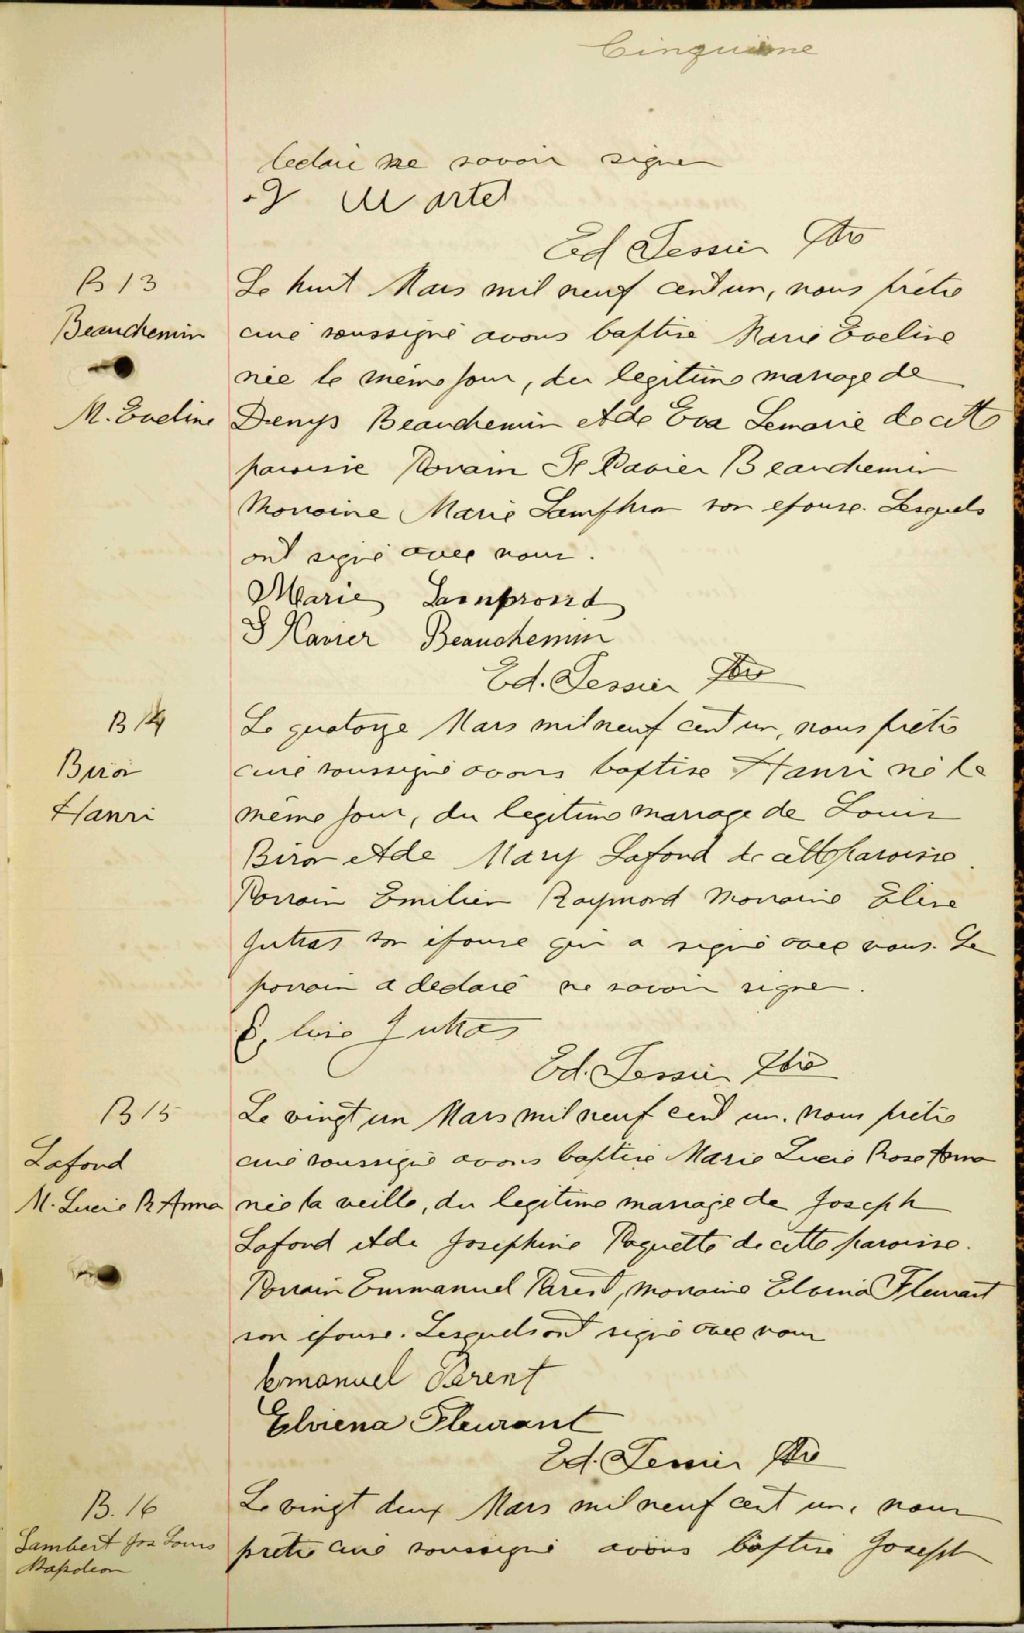 Cinquième
declaré ne savoir signer
J Martel
Ed Tessier Ptre
B 13
Beauchemin
M. Eveline
Le huit Mars mil neuf cent un, nous prêtre
curé soussigné avons baptisé Marie Eveline
née le même jour, du legitime mariage de
Denys Beauchemin et de Eva Lemarie de cette
paroisse Parrain F Xavier Beauchemin
Marraine Marie Lamphron son epouse. Lesquels
ont signé avec nous.
Marie Lamprond
F Xavier Beauchemin
Ed. Tessier Ptre
B 14
Biron
Hanri
Le quatorze Mars mil neuf cent un, nous prêtre
curé soussigné avons baptisé Hanri né le
même jour, du legitime mariage de Louis
Biron et de Mary Lafond de cette paroisse.
Parrain Emilien Raymond Marraine Elise
Jutras son épouse qui a signé avec nous. Le
parrain a declaré ne savoir signer.
Elise Jutras
Ed. Tessier Ptre
B 15
Lafond
M. Lucie R Anna
Le vingt un Mars mil neuf cent un. nous prêtre
curé soussigné avons baptisé Marie Lucie Rose Anna
née la veille, du legitime mariage de Joseph
Lafond et de Josephine Paquette de cette paroisse.
Parrain Emmanuel Parent, marraine Elvina Fleurant
son épouse. Lesquels ont signé avec nous
Emanuel Parent
Elviena Fleurant
Ed. Tessier Ptre
B. 16
Lambert Jos Louis
Napoleon
Le vingt deux Mars mil neuf cent un, nous
prêtre curé soussigné avons baptisé Joseph